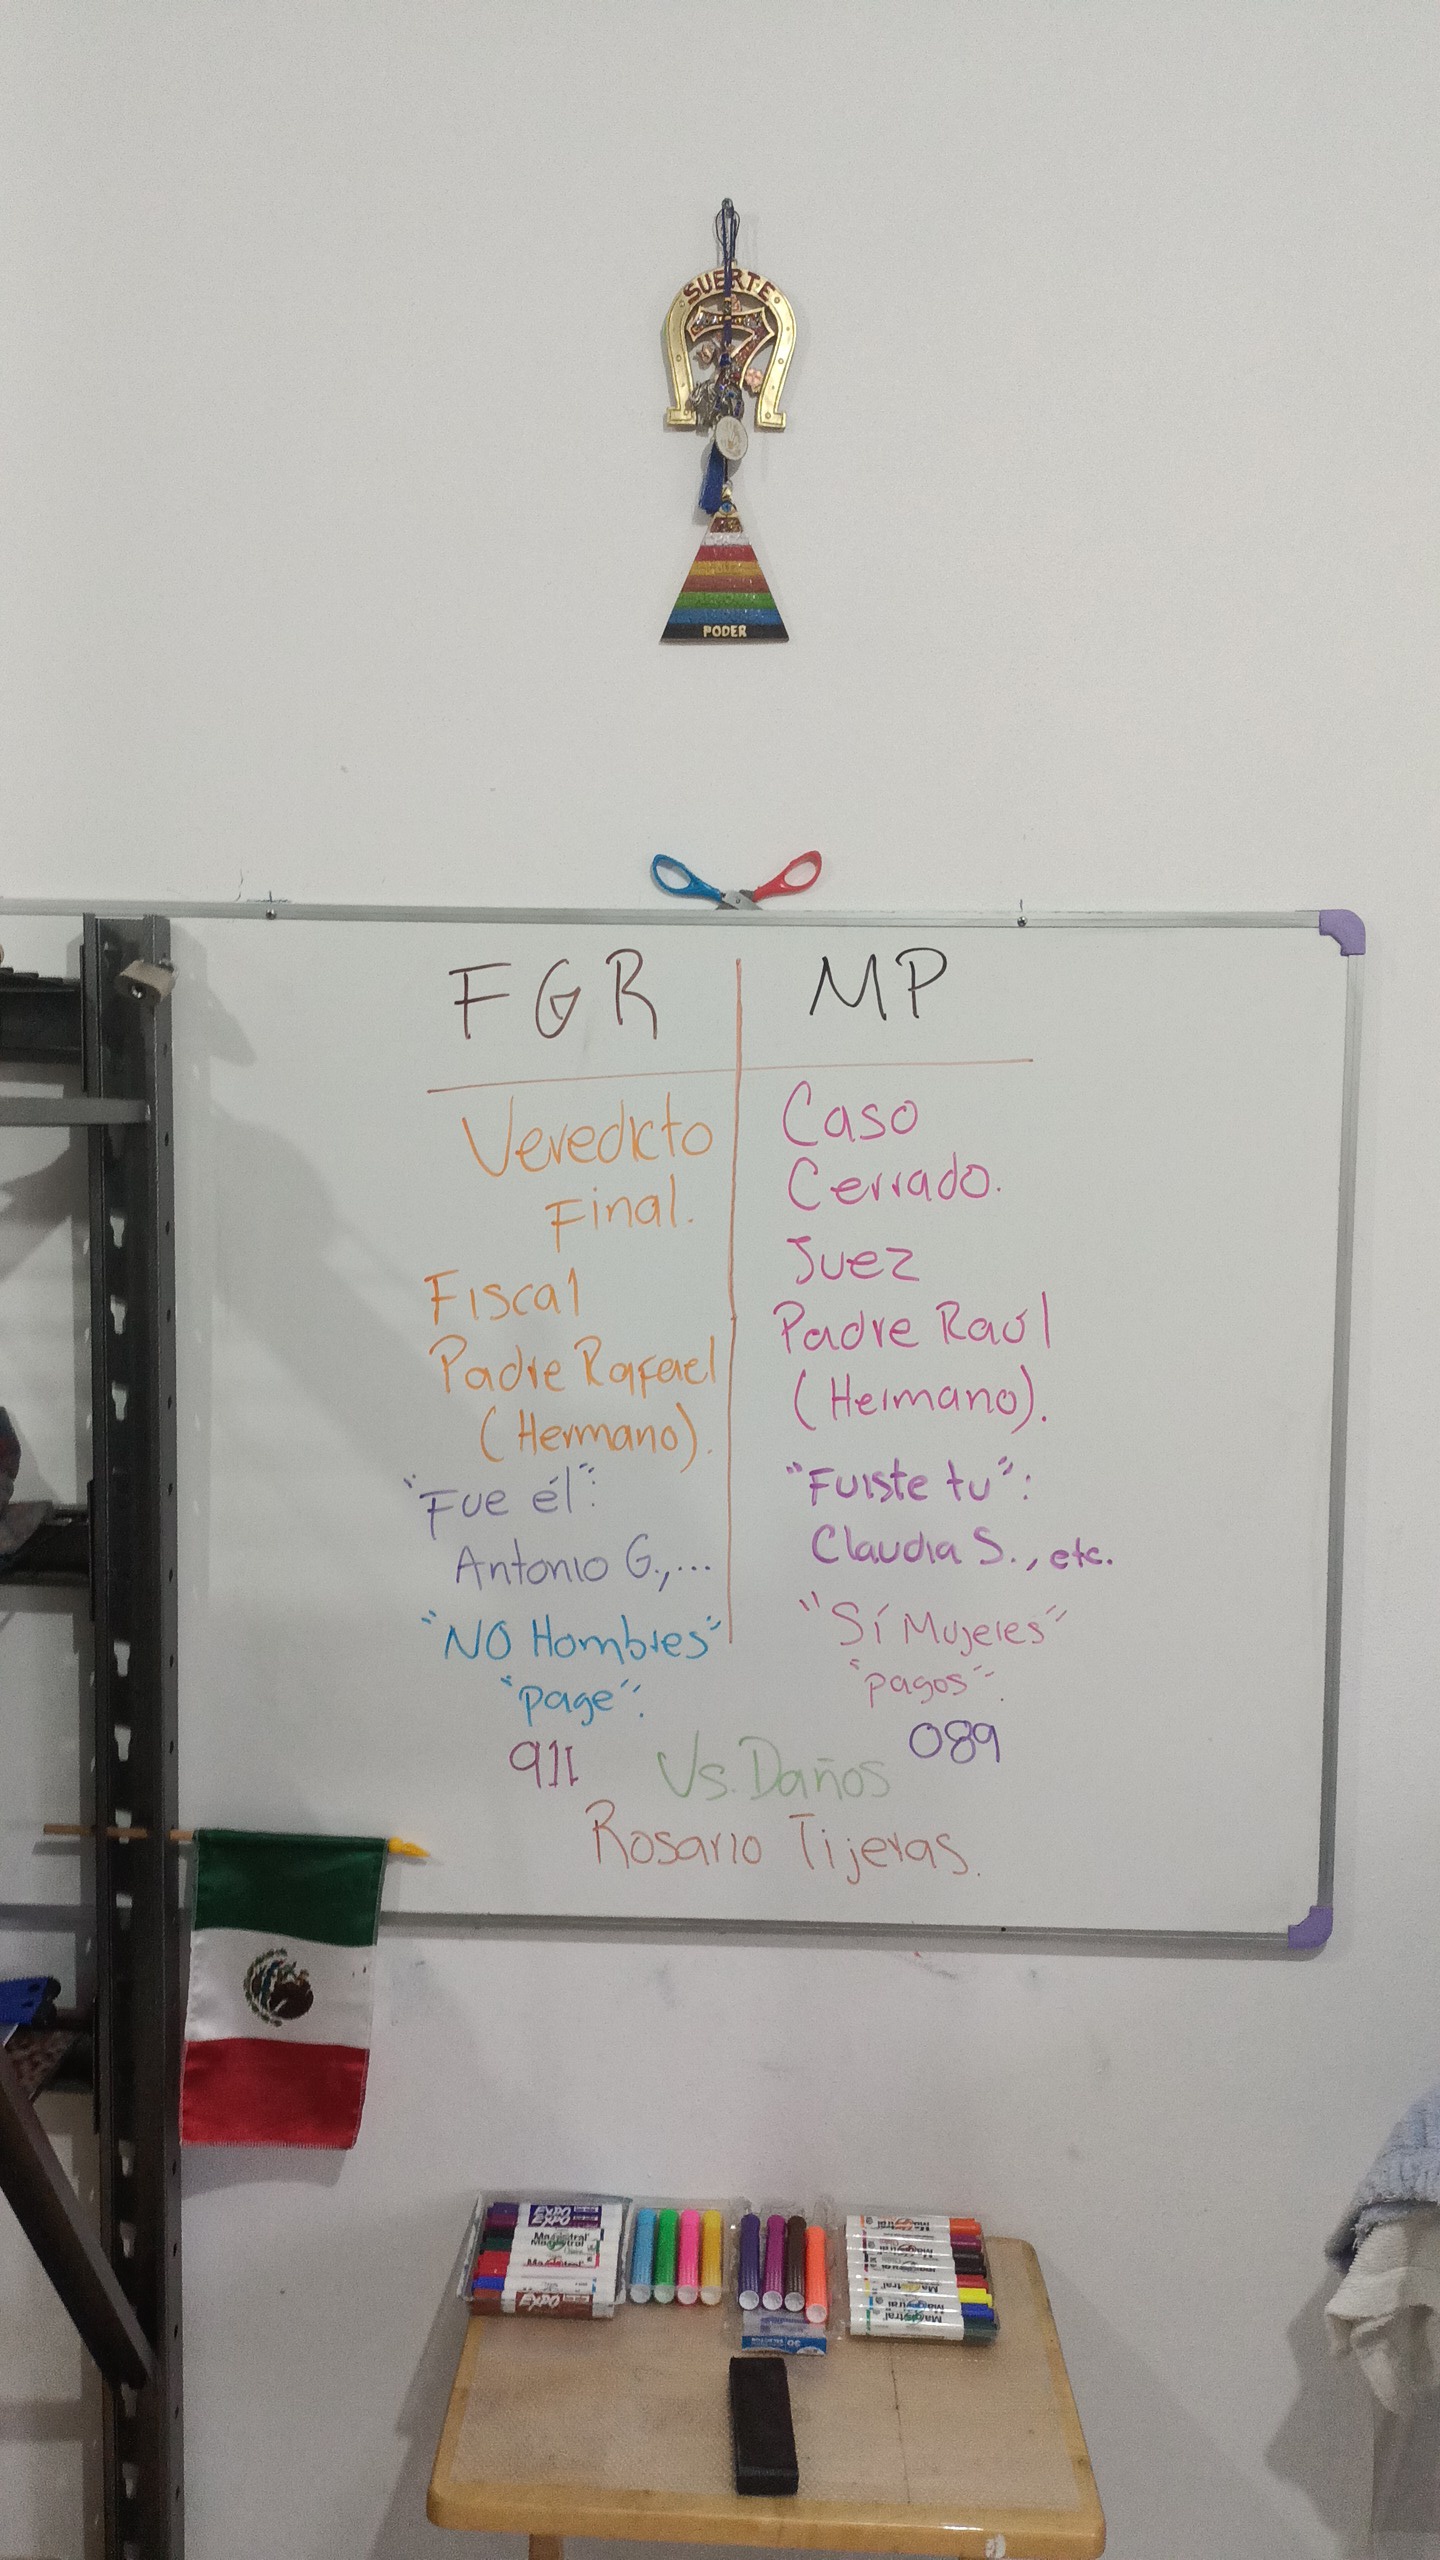 SUERTE
7
PODER
FGR
Veredicto
Final.
Fiscal
Padre Rafael
(Hermano).
"Fue él":
Antonio G.,...
"NO Hombres"
"page":
911
MP
Caso
Cerrado.
Juez
Padre Raúl
(Hermano).
"Fuiste tu":
Claudia S., etc.
"Sí Mujeres"
"pagos":
089
Vs. Daños
Rosario Tijeras.
EXPO
EXPO
Magistral
Magistral
Magistral
EXPO
Magistral
Magistral
Magistral